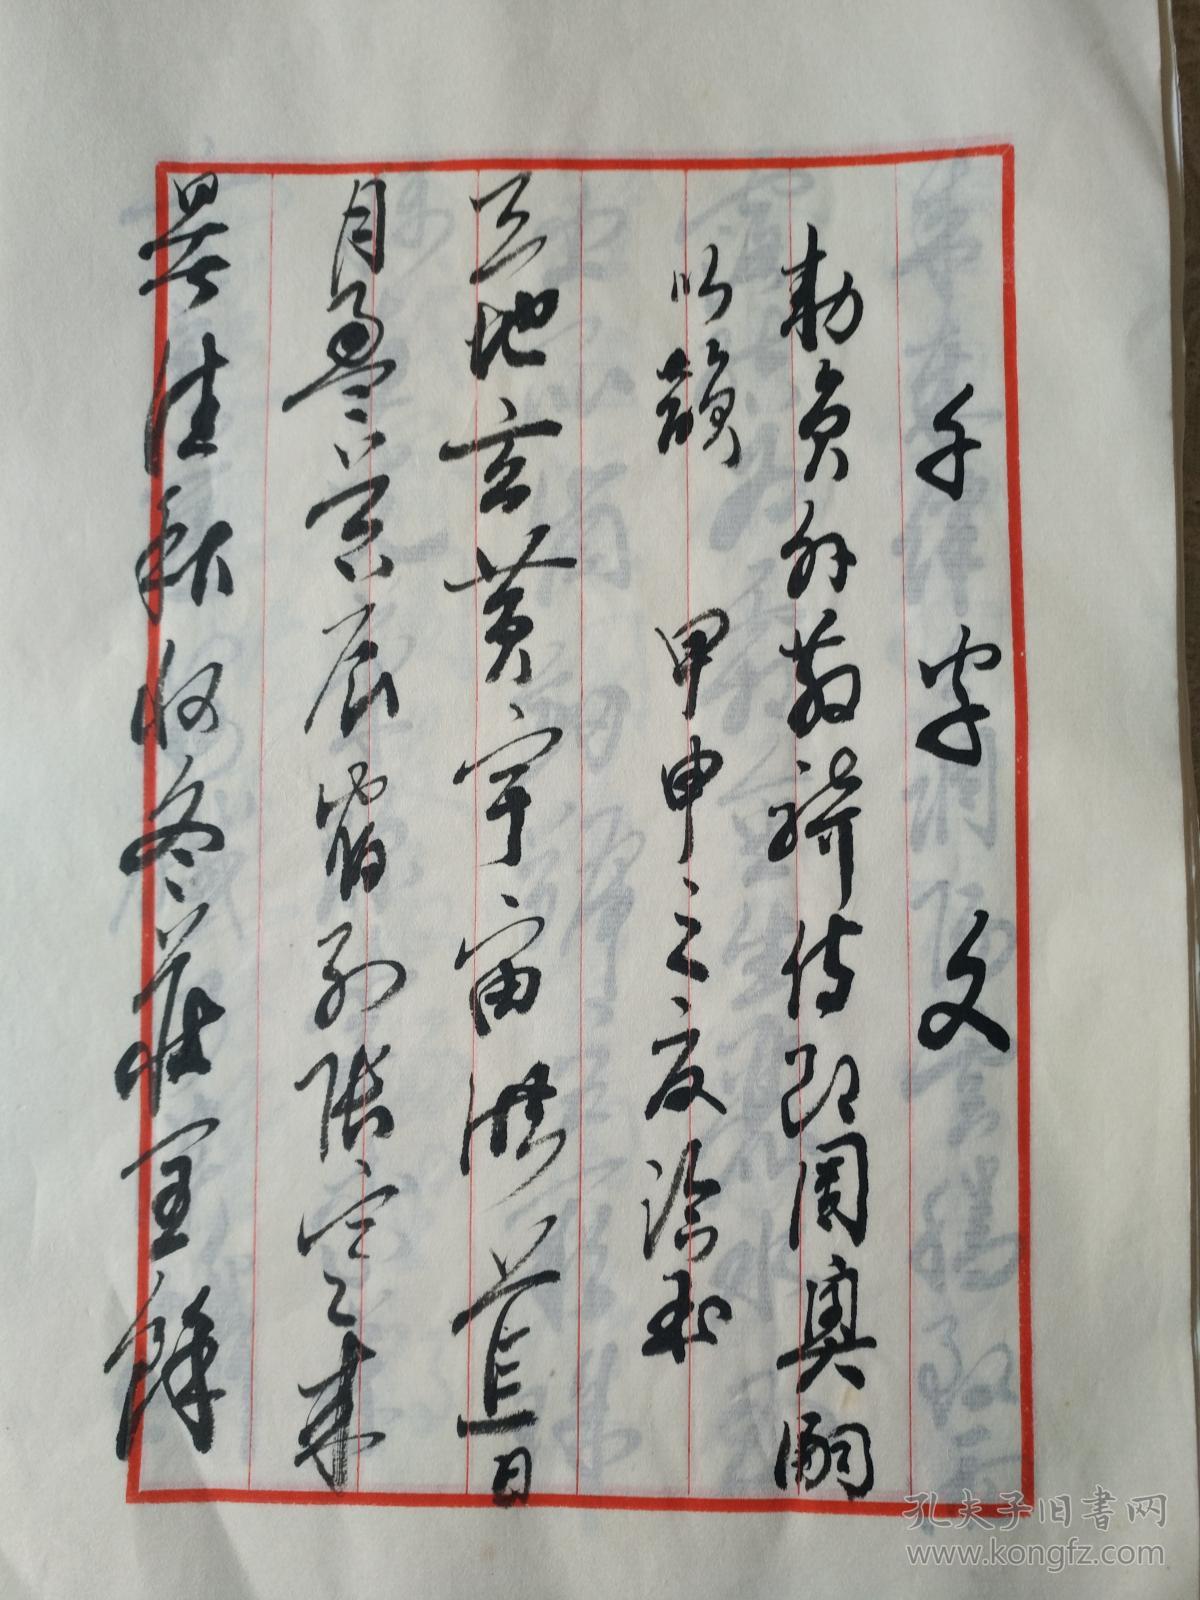 千字文
勅員外散騎侍郎周興嗣
次韻 甲申
天地玄黃宇宙洪荒日
月盈昃辰宿列張寒來
暑往秋收冬藏閏餘
孔夫子旧書网
www.kongfz.com